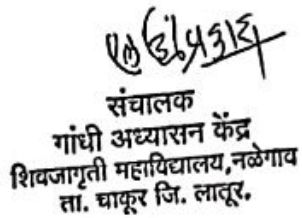 संचालक
गांधी अध्यासन केंद्र
शिवजागृती महाविद्यालय,नळेगाव
ता. चाकूर जि. लातूर.